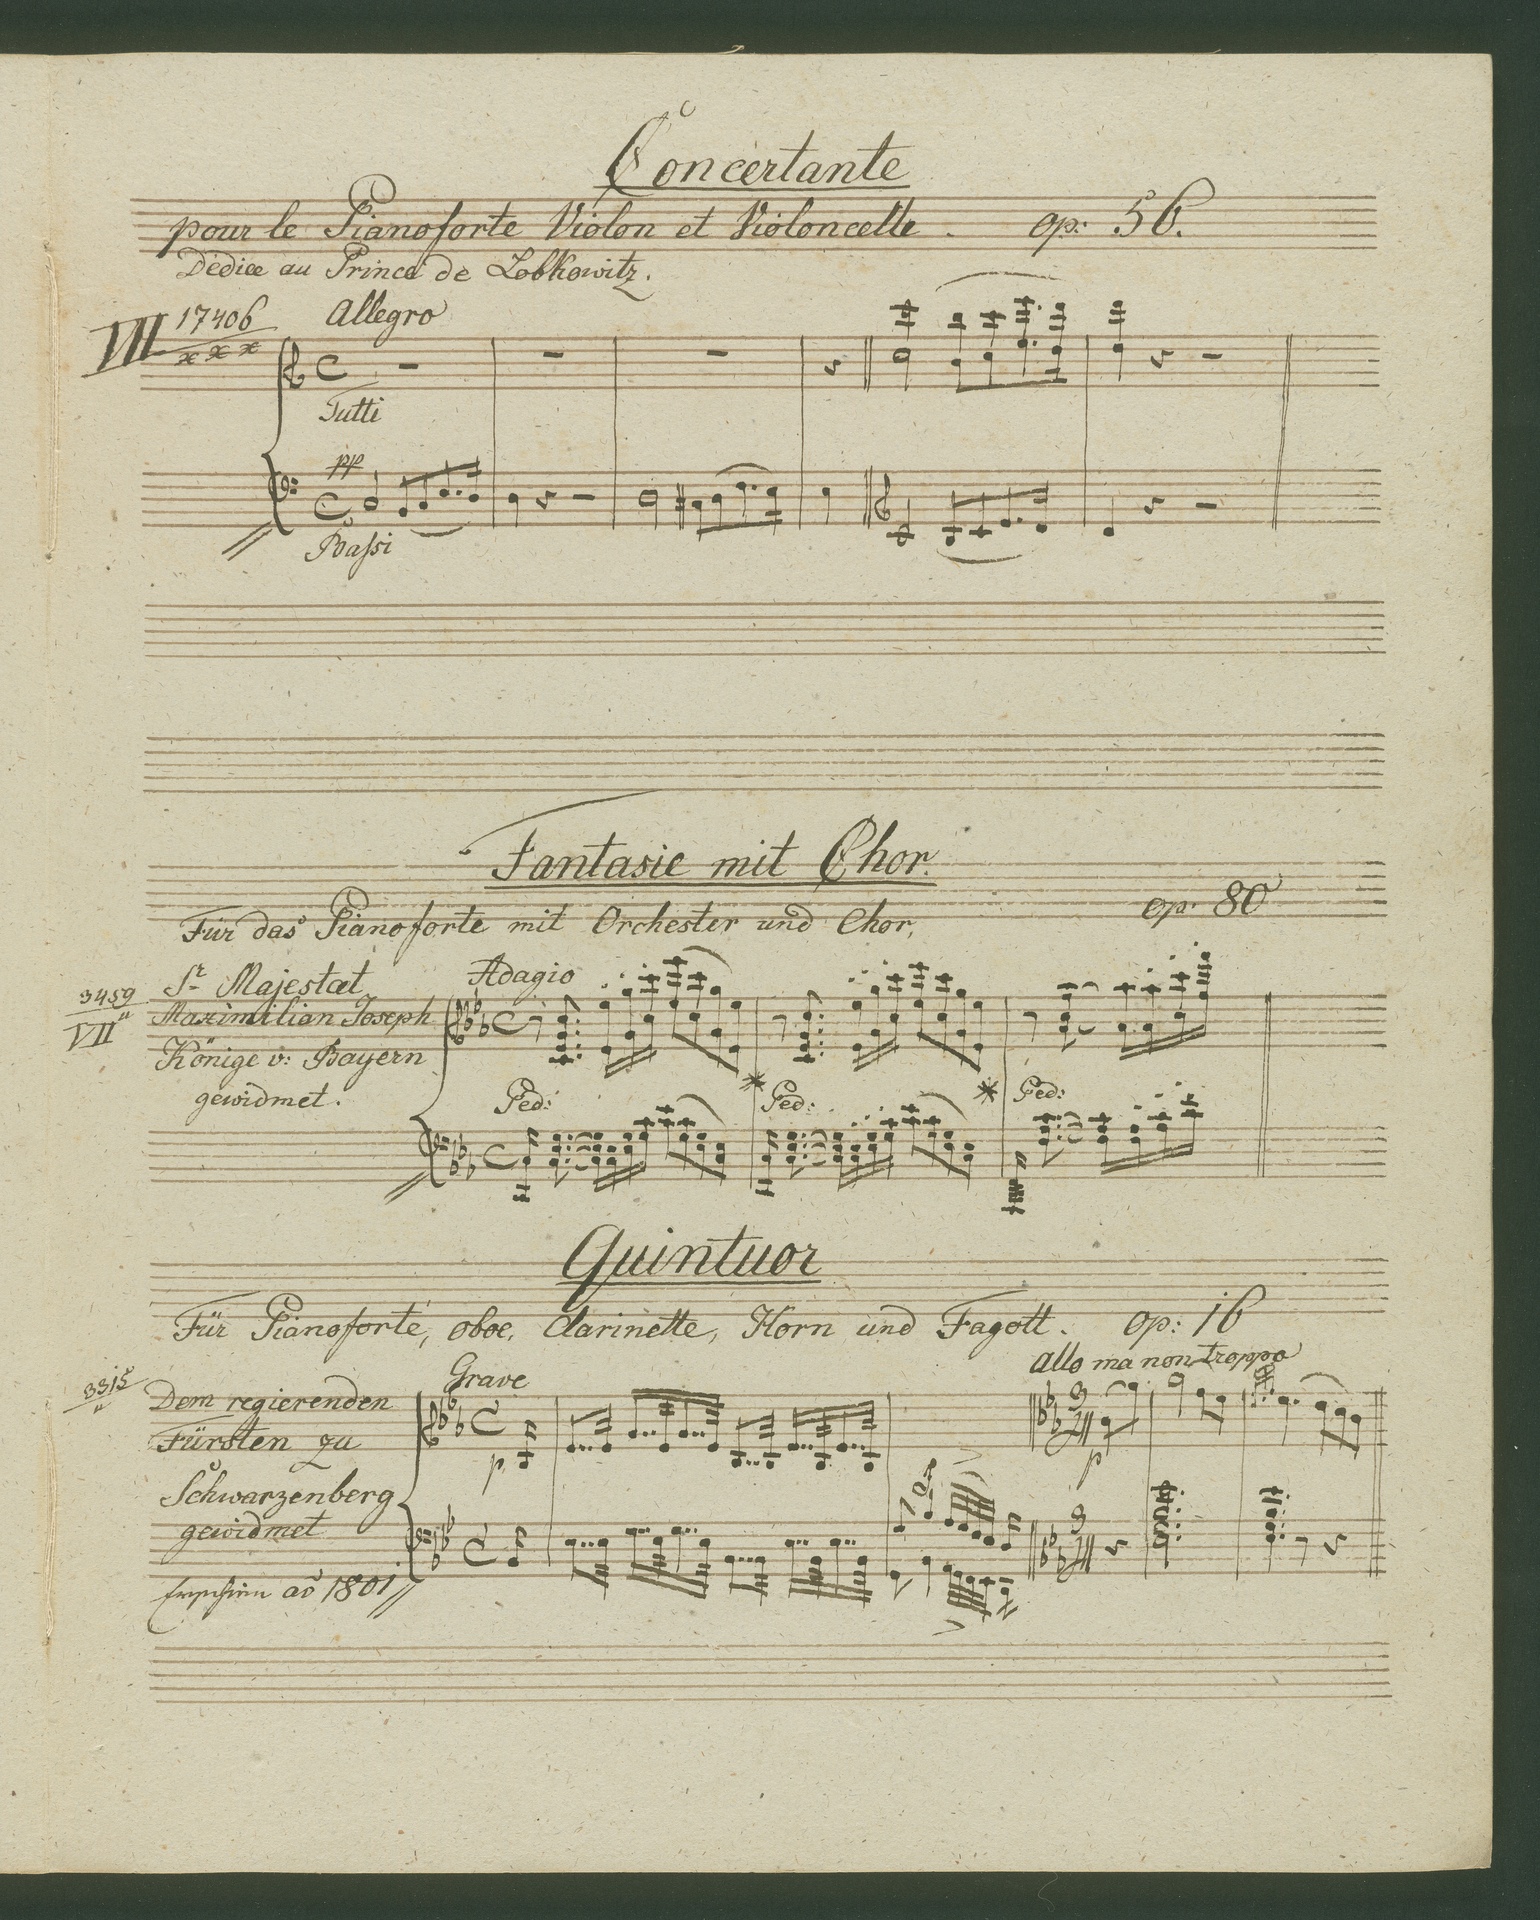 Concertante
pour le Pianoforte Violon et Violoncelle . op: 56.
Dédiée au Prince de Lobkowitz.
VII 17406
x x x
Allegro
Tutti
pp
Bassi
Fantasie mit Chor.
op: 80
Für das Pianoforte mit Orchester und Chor,
Sr Majestæt
Maximilian Joseph
Könige v: Bayern
gewidmet.
3459
VII"
Adagio
Ped: Ped: Ped:
Quintuor
Für Pianoforte, oboe, Clarinette, Horn und Fagott. op: 16
Allo ma non troppo
3315
"
Dem regierenden
Fürsten zu
Schwarzenberg
gewidmet
ao 1801
Grave
p
p